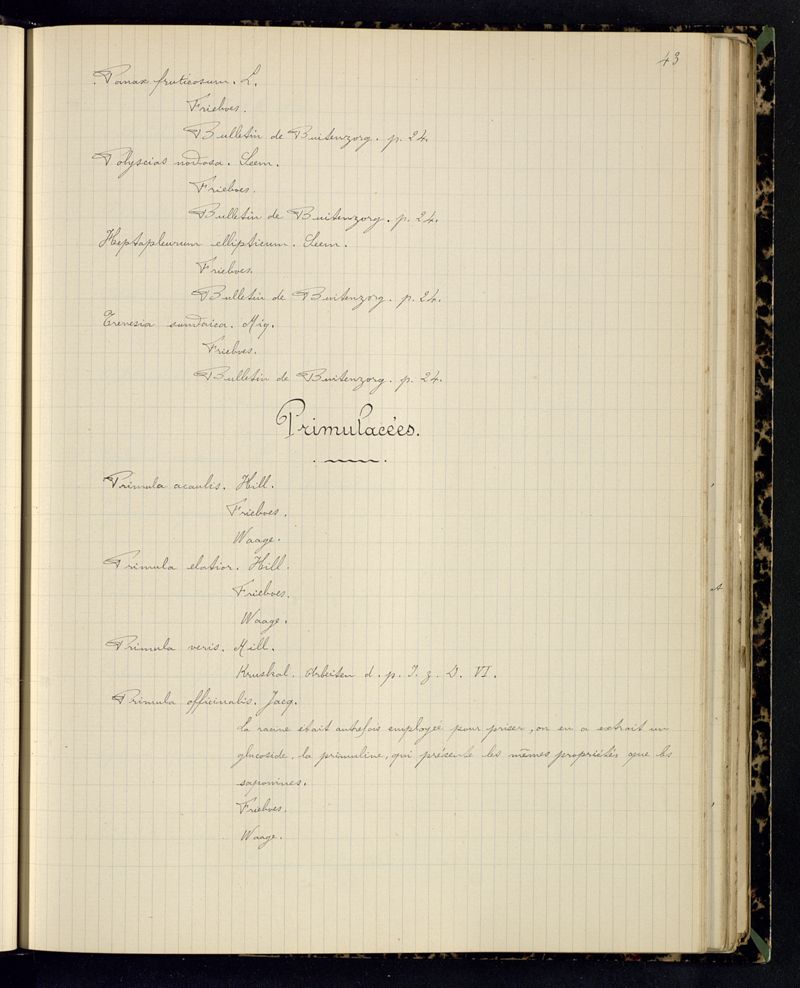 43
Panax fruticosum. L.
Frieboes.
Bulletin de Buitenzorg. p. 24.
Polyscias nodosa. Seem.
Frieboes.
Bulletin de Buitenzorg. p. 24.
Heptapleurum ellipticum. Seem.
Frieboes.
Bulletin de Buitenzorg. p. 24.
Trevesia sundaica. Miq.
Frieboes.
Bulletin de Buitenzorg. p. 24.
Primulacées.
Primula acaulis. Hill.
Frieboes.
Waage.
Primula elatior. Hill.
Frieboes.
Waage.
Primula veris. Mill.
Kruskal. Arbeiten d. p. I. z. D. VI.
Primula officinalis. Jacq.
la racine était autrefois employée pour priser, on en a extrait un
glucoside, la primuline, qui présente les mêmes propriétés que les
saponines.
Frieboes.
Waage.